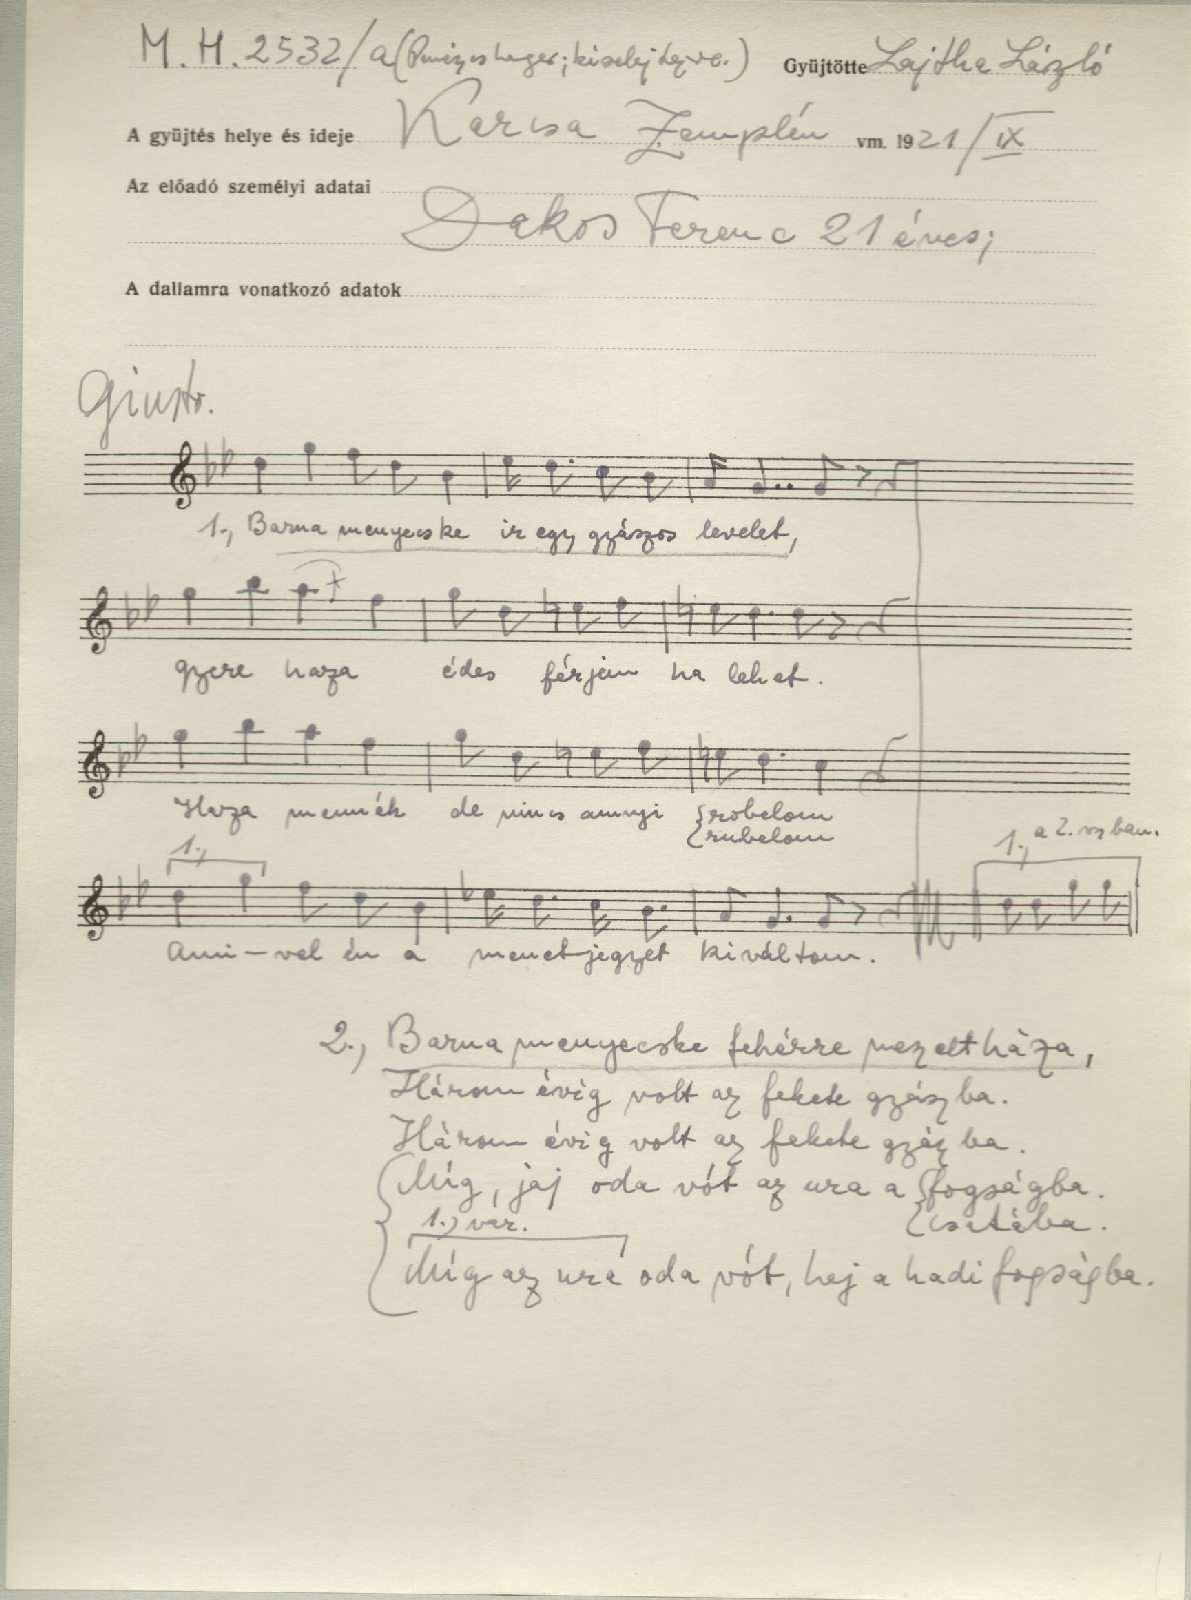 M. H. 2532/a Gyüjtötte Lajtha László
A gyüjtés helye és ideje Karcsa Zemplén vm. 1921/IX
Az előadó személyi adatai
Dakos Ferenc 21 éves;
A dallamra vonatkozó adatok
Giusto.
1., Barna menyecske ir egy gyászos levelet,
gyere haza édes férjem ha lehet.
Haza mennék de nincs annyi robelom
rubelom
1., 1., a 2. vszban.
Ami-vel én a menetjegyet kiváltom.
2., Barna menyecske fehérre meszelt háza,
Három évig volt az fekete gyászba.
Három évig volt az fekete gyászba.
Míg, jaj oda vót az ura a fogságba.
1., vár. csatába.
Míg az ura oda vót, hej a hadi fogságba.